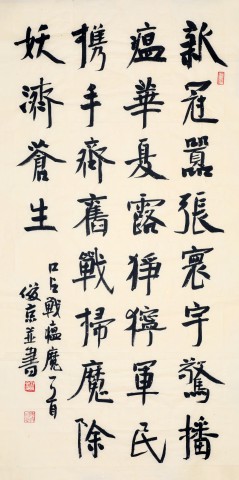 新冠囂張寰宇驚播
瘟華夏露猙獰軍民
携手齊舊戰掃魔除
妖濟蒼生
口占戰瘟魔一首
俊京並書